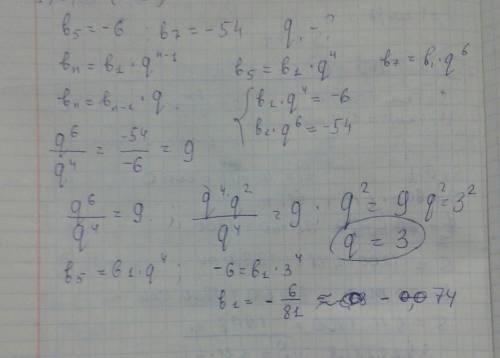 b₅ = -6 b₇ = -54 q - ?
bₙ = b₁ · qⁿ⁻¹ b₅ = b₁ · q⁴ b₇ = b₁ · q⁶
bₙ = bₙ₋₁ · q { b₁ · q⁴ = -6
b₁ · q⁶ = -54
q⁶/q⁴ = -54/-6 = 9
q⁶/q⁴ = 9. , q⁴q²/q⁴ = 9 ; q² = 9 q² = 3²
q = 3
b₅ = b₁ · q⁴ ; -6 = b₁ · 3⁴
b₁ = - 6/81 ≈ - 0,074